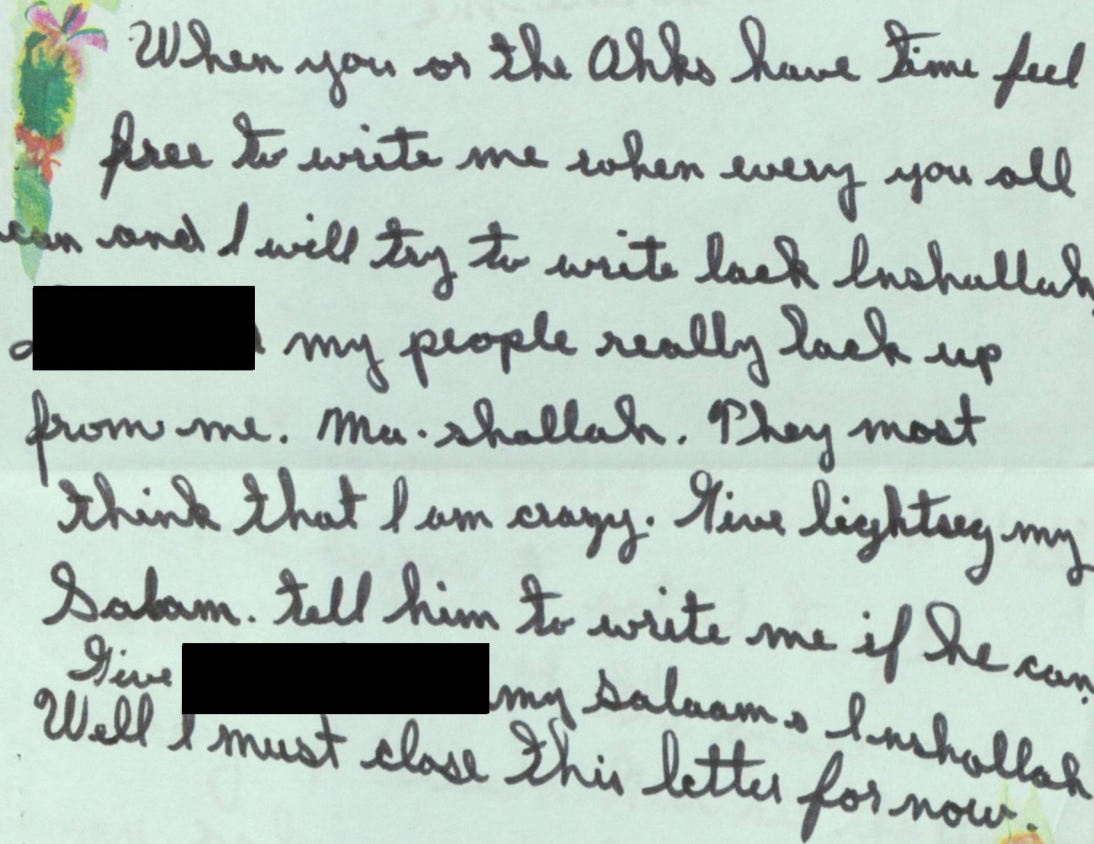 When you or the Ahks have time feel
free to write me when every you all
can and I will try to write back Inshallah
my people really back up
from me. Ma.shallah. They most
think that I am crazy. Give lightsey my
Salam. tell him to write me if he can
Give my Salaams Inshallah
Well I must close this letter for now.